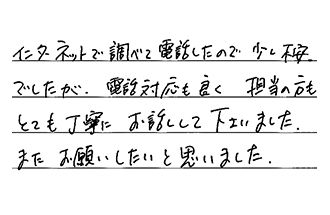 インターネットで調べて電話したので少し不安
でしたが、電話対応も良く 担当の方も
とても丁寧に お話しして下さいました。
また お願いしたいと思いました。